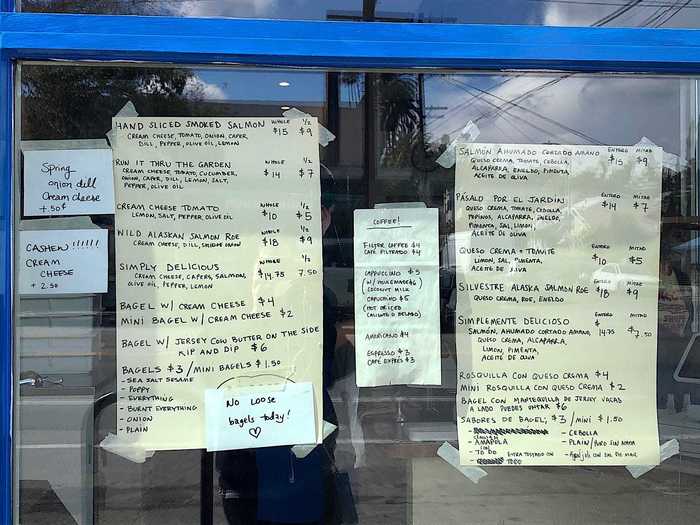 Spring
onion dill
Cream cheese
+.50¢
CASHEW !!!!!!
CREAM
CHEESE
+ 2.50
WHOLE 1/2
HAND SLICED SMOKED SALMON $15 $9
CREAM CHEESE, TOMATO, ONION, CAPER,
DILL, PEPPER, OLIVE OIL, LEMON
WHOLE 1/2
RUN IT THRU THE GARDEN $14 $7
CREAM CHEESE, TOMATO, CUCUMBER,
ONION, CAPER, DILL, LEMON, SALT,
PEPPER, OLIVE OIL
WHOLE 1/2
CREAM CHEESE TOMATO $10 $5
LEMON, SALT, PEPPER, OLIVE OIL
WHOLE 1/2
WILD ALASKAN SALMON ROE $18 $9
CREAM CHEESE, DILL, ONION
WHOLE 1/2
SIMPLY DELICIOUS $14.75 7.50
CREAM CHEESE, CAPERS, SALMON,
OLIVE OIL, PEPPER, LEMON
BAGEL W/ CREAM CHEESE $4
MINI BAGEL W/ CREAM CHEESE $2
BAGEL W/ JERSEY COW BUTTER ON THE SIDE
RIP AND DIP $6
BAGELS $3 / MINI BAGELS $1.50
- SEA SALT SESAME
- POPPY
- EVERYTHING
- BURNT EVERYTHING
- ONION
- PLAIN
No LOOSE
bagels today!
COFFEE!
FILTER COFFEE $4
CAFÉ FILTRADO $4
CAPPUCCINO $5
(W/ HOUSEMADE
COCONUT MILK
CAPUCHINO $5
(HOT OR ICED
CALIENTE O HELADO)
AMERICANO $4
ESPRESSO $3
CAFÉ EXPRES $3
ENTERO MITAD
SALMON AHUMADO CORTADO AMANO $15 $9
QUESO CREMA, TOMATE, CEBOLLA,
ALCAPARRA, ENELDO, PIMIENTA,
ACEITE DE OLIVA
ENTERO MITAD
PASALO POR EL JARDIN $14 $7
QUESO CREMA, TOMATE, CEBOLLA,
PEPINOS, ALCAPARRA, ENELDO,
PIMIENTA, SAL, LIMON,
ACEITE DE OLIVA
ENTERO MITAD
QUESO CREMA + TOMATE $10 $5
LIMON, SAL, PIMIENTA,
ACEITE DE OLIVA
ENTERO MITAD
SILVESTRE ALASKA SALMON ROE $18 $9
QUESO CREMA, ROE, ENELDO
ENTERO MITAD
SIMPLEMENTE DELICIOSO $14.75 $7.50
SALMON, AHUMADO CORTADO AMANO,
QUESO CREMA, ALCAPARRA,
LIMON, PIMIENTA,
ACEITE DE OLIVA
ROSQUILLA CON QUESO CREMA $4
MINI ROSQUILLA CON QUESO CREMA $2
BAGEL CON MANTEQUILLA DE JERSEY VACAS
A LADO PUEDES UNTAR $6
SABORES DE BAGEL, $3 / MINI $1.50
- CEBOLLA
- AMAPOLA
- PLAIN/PURO SIN NADA
- TODO
EXTRA TOSTADO CON
TODO
- Ajonjoli con SAL DE MAR